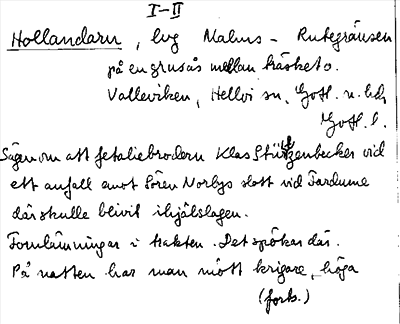 I-II
Hollandaru, lvg Malms - Rutegränsen
på en grusås mellan träsket o.
Valleviken, Hellvi sn, Gotl. n. hd,
Gotl. l.
Sägen om att fetaliebrodern Klas Stürtzenbecker vid
ett anfall mot Sören Norbys slott vid Fardume
där skulle blivit ihjälslagen.
Fornlämningar i trakten. Det spökar där.
På natten har man mött krigare, höga
(forts.)